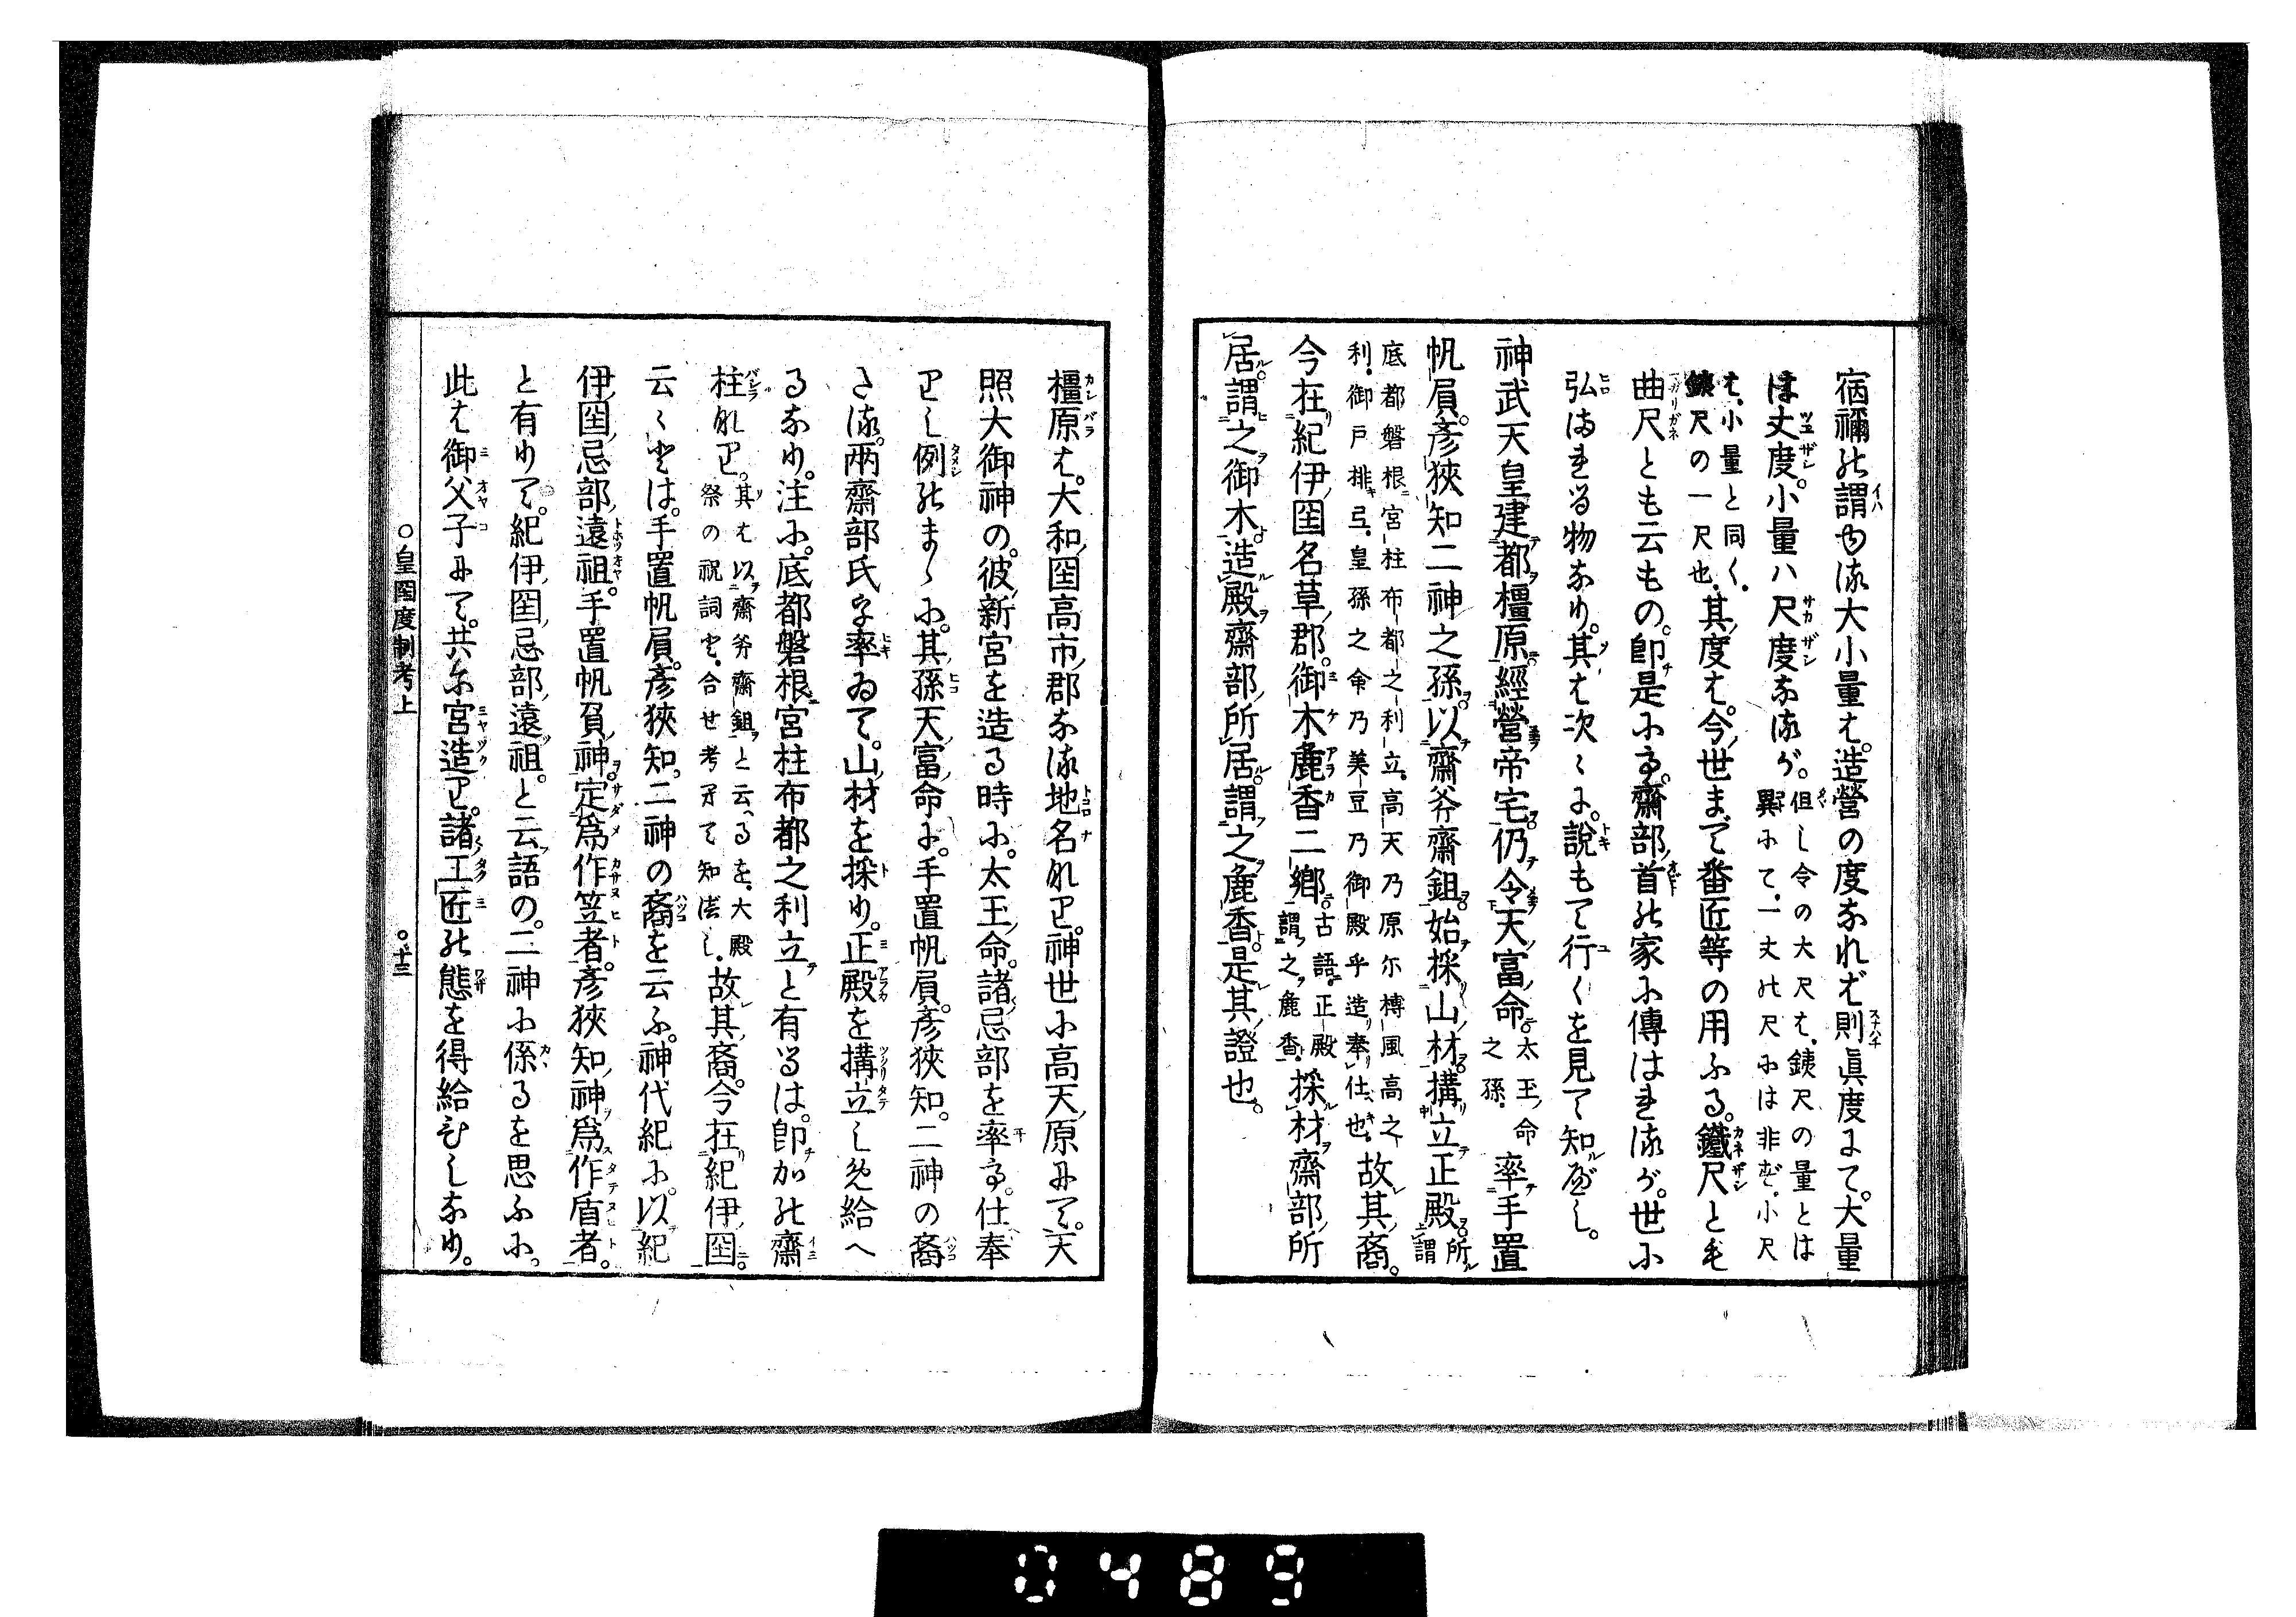 宿禰の謂ゆる大小量は。造營の度なれば則眞度にて。大量
は丈度。小量ハ尺度なるが。但し令の大尺は、鐵尺の量とは
異にて、一丈の尺には非ず、小尺
は、小量と同く、
鐵尺の一尺也。其度は。今ノ世まで番匠等の用ふる。鐵尺とも
曲尺とも云もの。卽是にて。齋部ノ首の家に傳はれるが。世に
弘まれる物なり。其は次〻に。説もて行くを見て知べし。
神武天皇建都橿原。經營帝宅。仍令天富命。太玉ノ命
之孫。率手置
帆屓。彥狹知二神之孫。以齋斧齋鉏。始採山材。搆立正殿。所謂
底都磐根宮柱布都之利立。高天乃原尓榑風高之
利。御戸排弖。皇孫之命乃美豆乃御殿乎造奉仕也。故其裔。
今在紀伊國名草郡。御木麁香二鄕。古語。正殿
謂之麁香。採材齋部所
居。謂之御木。造殿齋部所居。謂之麁香。是其證也。
橿原は。大和ノ国高市ノ郡なる地名にて。神世に高天ノ原にて。天
照大御神の。彼ノ新宮を造る時に。太玉ノ命。諸忌部を率て。仕奉
りし例のまゝに。其ノ孫天富ノ命に。手置帆屓。彥狹知。二神の裔
さる。兩齋部氏を率ゐて。山材を採り。正殿を搆立しめ給へ
るなり。注に。底都磐根宮柱布都之利立と有るは。卽かの齋
柱なり。其は以齋斧齋鉏と云るを、大殿
祭の祝詞と、合せ考りて知べし。故其裔。今在紀伊国。
云〻とは。手置帆屓。彥狹知。二神の裔を云ふ。神代紀に。以紀
伊ノ国ノ忌部ノ遠祖。手置帆負ノ神。定爲作笠者。彥狹知ノ神爲作盾者。
と有りて。紀伊ノ国ノ忌部ノ遠祖。と云語の。二神に係るを思ふに。
此は御父子にて。共に宮造り。諸工匠の態を得給ひしなり。
○皇国度制考上
○十三
0489